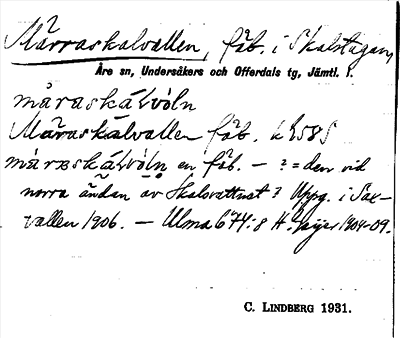 Märraskalvallen, fäb. i Skalstugan,
Åre sn, Undersåkers och Offerdals tg, Jämtl. l.
måraskáļvòln
Märaskálvallen fäb. k 458S
mårɐskáļvòln en fäb. – ? = den vid
norra ändan av Skalsvattnet? Uppg. i Sax-
vallen 1906. – Ulma 674:8 H. Geijer 1904-09.
C. LINDBERG 1931.